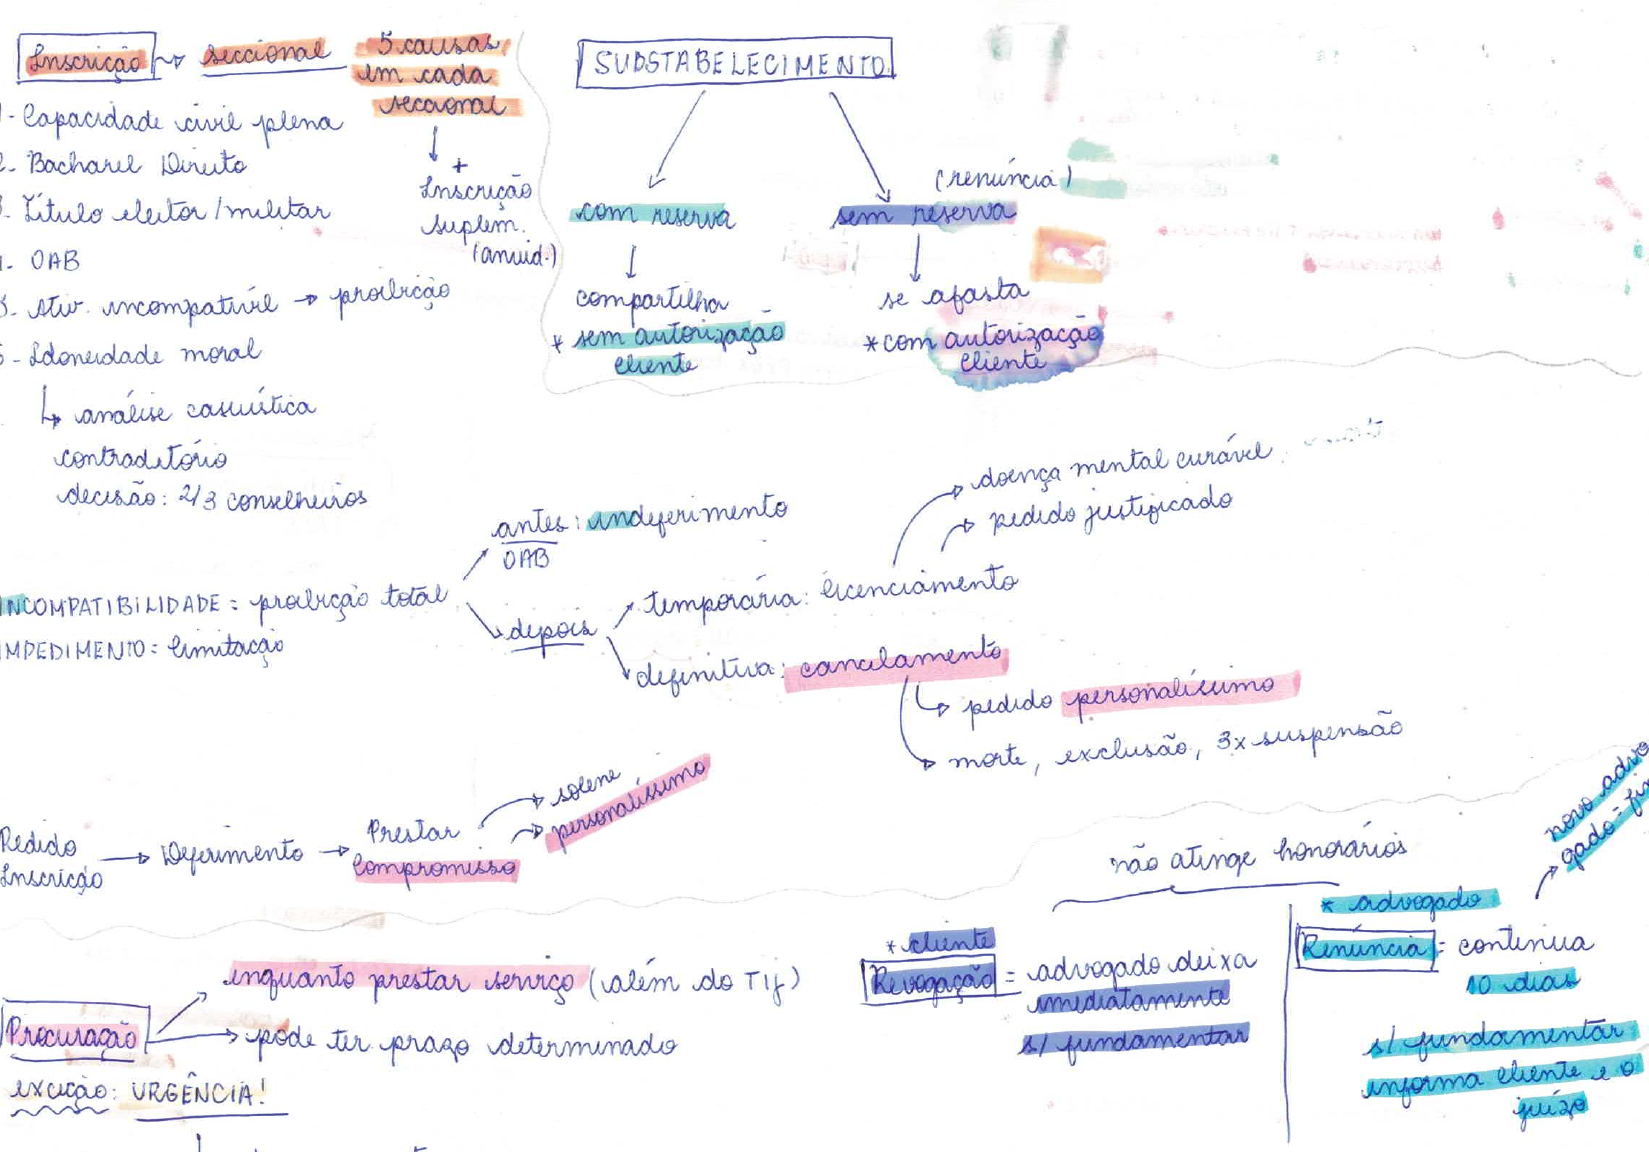 Inscrição → seccional
5 causas
em cada
seccional
+
Inscrição
suplem.
(anuid.)
1- Capacidade civil plena
2- Bacharel Direito
3- Título eleitor/militar
4- OAB
5- Ativ. incompatível → proibição
6- Idoneidade moral
↳ análise casuística
contraditório
decisão: 2/3 conselheiros
SUBSTABELECIMENTO
com reserva
compartilha
* sem autorização
cliente
(renúncia)
sem reserva
se afasta
* com autorização
cliente
INCOMPATIBILIDADE = proibição total
IMPEDIMENTO = limitação
antes: indeferimento
OAB
depois
temporária: licenciamento
doença mental curável
pedido justificado
definitiva: cancelamento
pedido personalíssimo
morte, exclusão, 3x suspensão
Pedido
Inscrição
→ Deferimento →
Prestar
Compromisso
solene
personalíssimo
Procuração
enquanto prestar serviço (além do TIJ)
pode ter prazo determinado
exceção: URGÊNCIA!
não atinge honorários
* cliente
Revogação = advogado deixa
imediatamente
s/ fundamentar
* advogado
Renúncia = continua
10 dias
s/ fundamentar
informa cliente e o
juízo
novo advo
gado